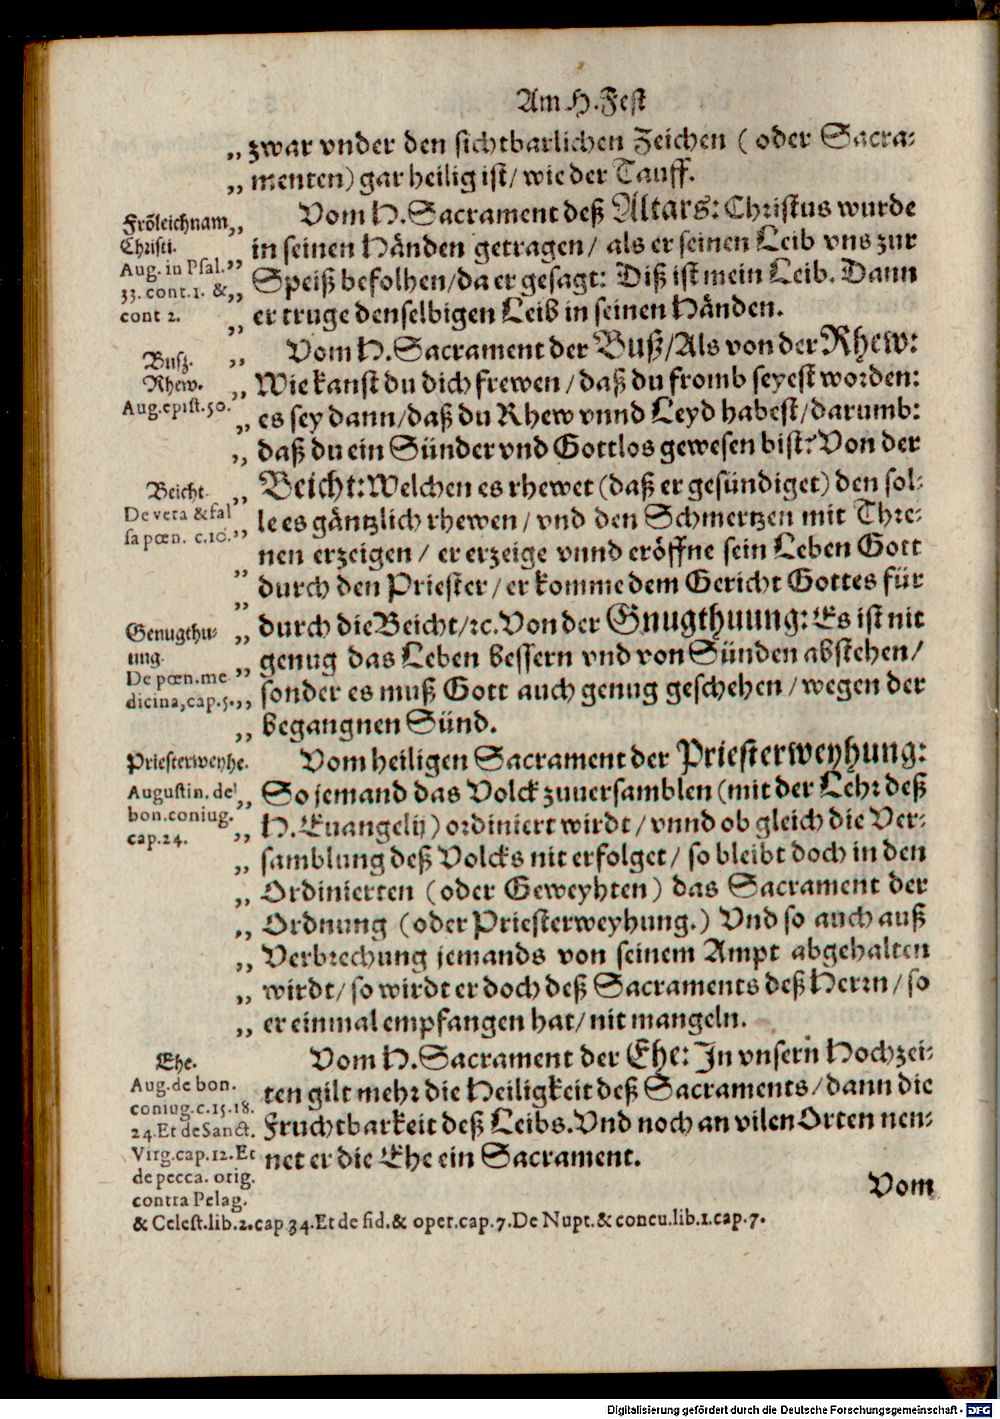 Am H. Fest
„ zwar vnder den sichtbarlichen Zeichen (oder Sacra-
„ menten) gar heilig ist/ wie der Tauff.
Fröleichnam
Christi.
Aug. in Psal.
33. cont. 1. &
cont 2.
„ Vom H. Sacrament deß Altars: Christus wurde
in seinen Händen getragen/ als er seinen Leib vns zur
„ Speiß befolhen/ da er gesagt: Diß ist mein Leib. Dann
„ er truge denselbigen Leib in seinen Händen.
Busz.
Rhew.
Aug. epist. 50.
„ Vom H. Sacrament der Buß/ Als von der Rhew:
„ Wie kanst du dich frewen/ daß du fromb seyest worden:
„ es sey dann/ daß du Rhew vnnd Leyd habest/ darumb:
„ daß du ein Sünder vnd Gottlos gewesen bist? Von der
Beicht.
De vera & fal
sa pœn. c. 10.
„ Beicht: Welchen es rhewet (daß er gesündiget) den sol-
„ le es gäntzlich rhewen/ vnd den Schmertzen mit Thre-
nen erzeigen/ er erzeige vnnd eröffne sein Leben Gott
„ durch den Priester/ er komme dem Gericht Gottes für
„ durch die Beicht/ ꝛc. Von der Gnugthuung: Es ist nit
Genugthu-
ung.
De pœn. me
dicina, cap. 5.
„ genug das Leben bessern vnd von Sünden abstehen/
„ sonder es muß Gott auch genug geschehen/ wegen der
„ begangnen Sünd.
Priesterweyhe.
Augustin. de
bon. coniug.
cap. 24.
Vom heiligen Sacrament der Priesterweyhung:
„ So jemand das Volck zuuersamblen (mit der Lehr deß
„ H. Euangelij) ordiniert wirdt/ vnnd ob gleich die Ver-
„ samblung deß Volcks nit erfolget/ so bleibt doch in den
„ Ordinierten (oder Geweyhten) das Sacrament der
„ Ordnung (oder Priesterweyhung.) Vnd so auch auß
„ Verbrechung jemands von seinem Ampt abgehalten
„ wirdt/ so wirdt er doch deß Sacraments deß Herrn/ so
„ er einmal empfangen hat/ nit mangeln.
Ehe.
Aug. de bon.
coniug. c. 15. 18.
24. Et de Sanct.
Virg. cap. 12. Et
de pecca. orig.
contra Pelag.
& Celest. lib. 2. cap. 34. Et de fid. & oper. cap. 7. De Nupt. & concu. lib. 1. cap. 7.
Vom H. Sacrament der Ehe: In vnsern Hochzei-
ten gilt mehr die Heiligkeit deß Sacraments/ dann die
Fruchtbarkeit deß Leibs. Vnd noch an vilen Orten nen-
net er die Ehe ein Sacrament.
Vom
Digitalisierung gefördert durch die Deutsche Forschungsgemeinschaft - DFG